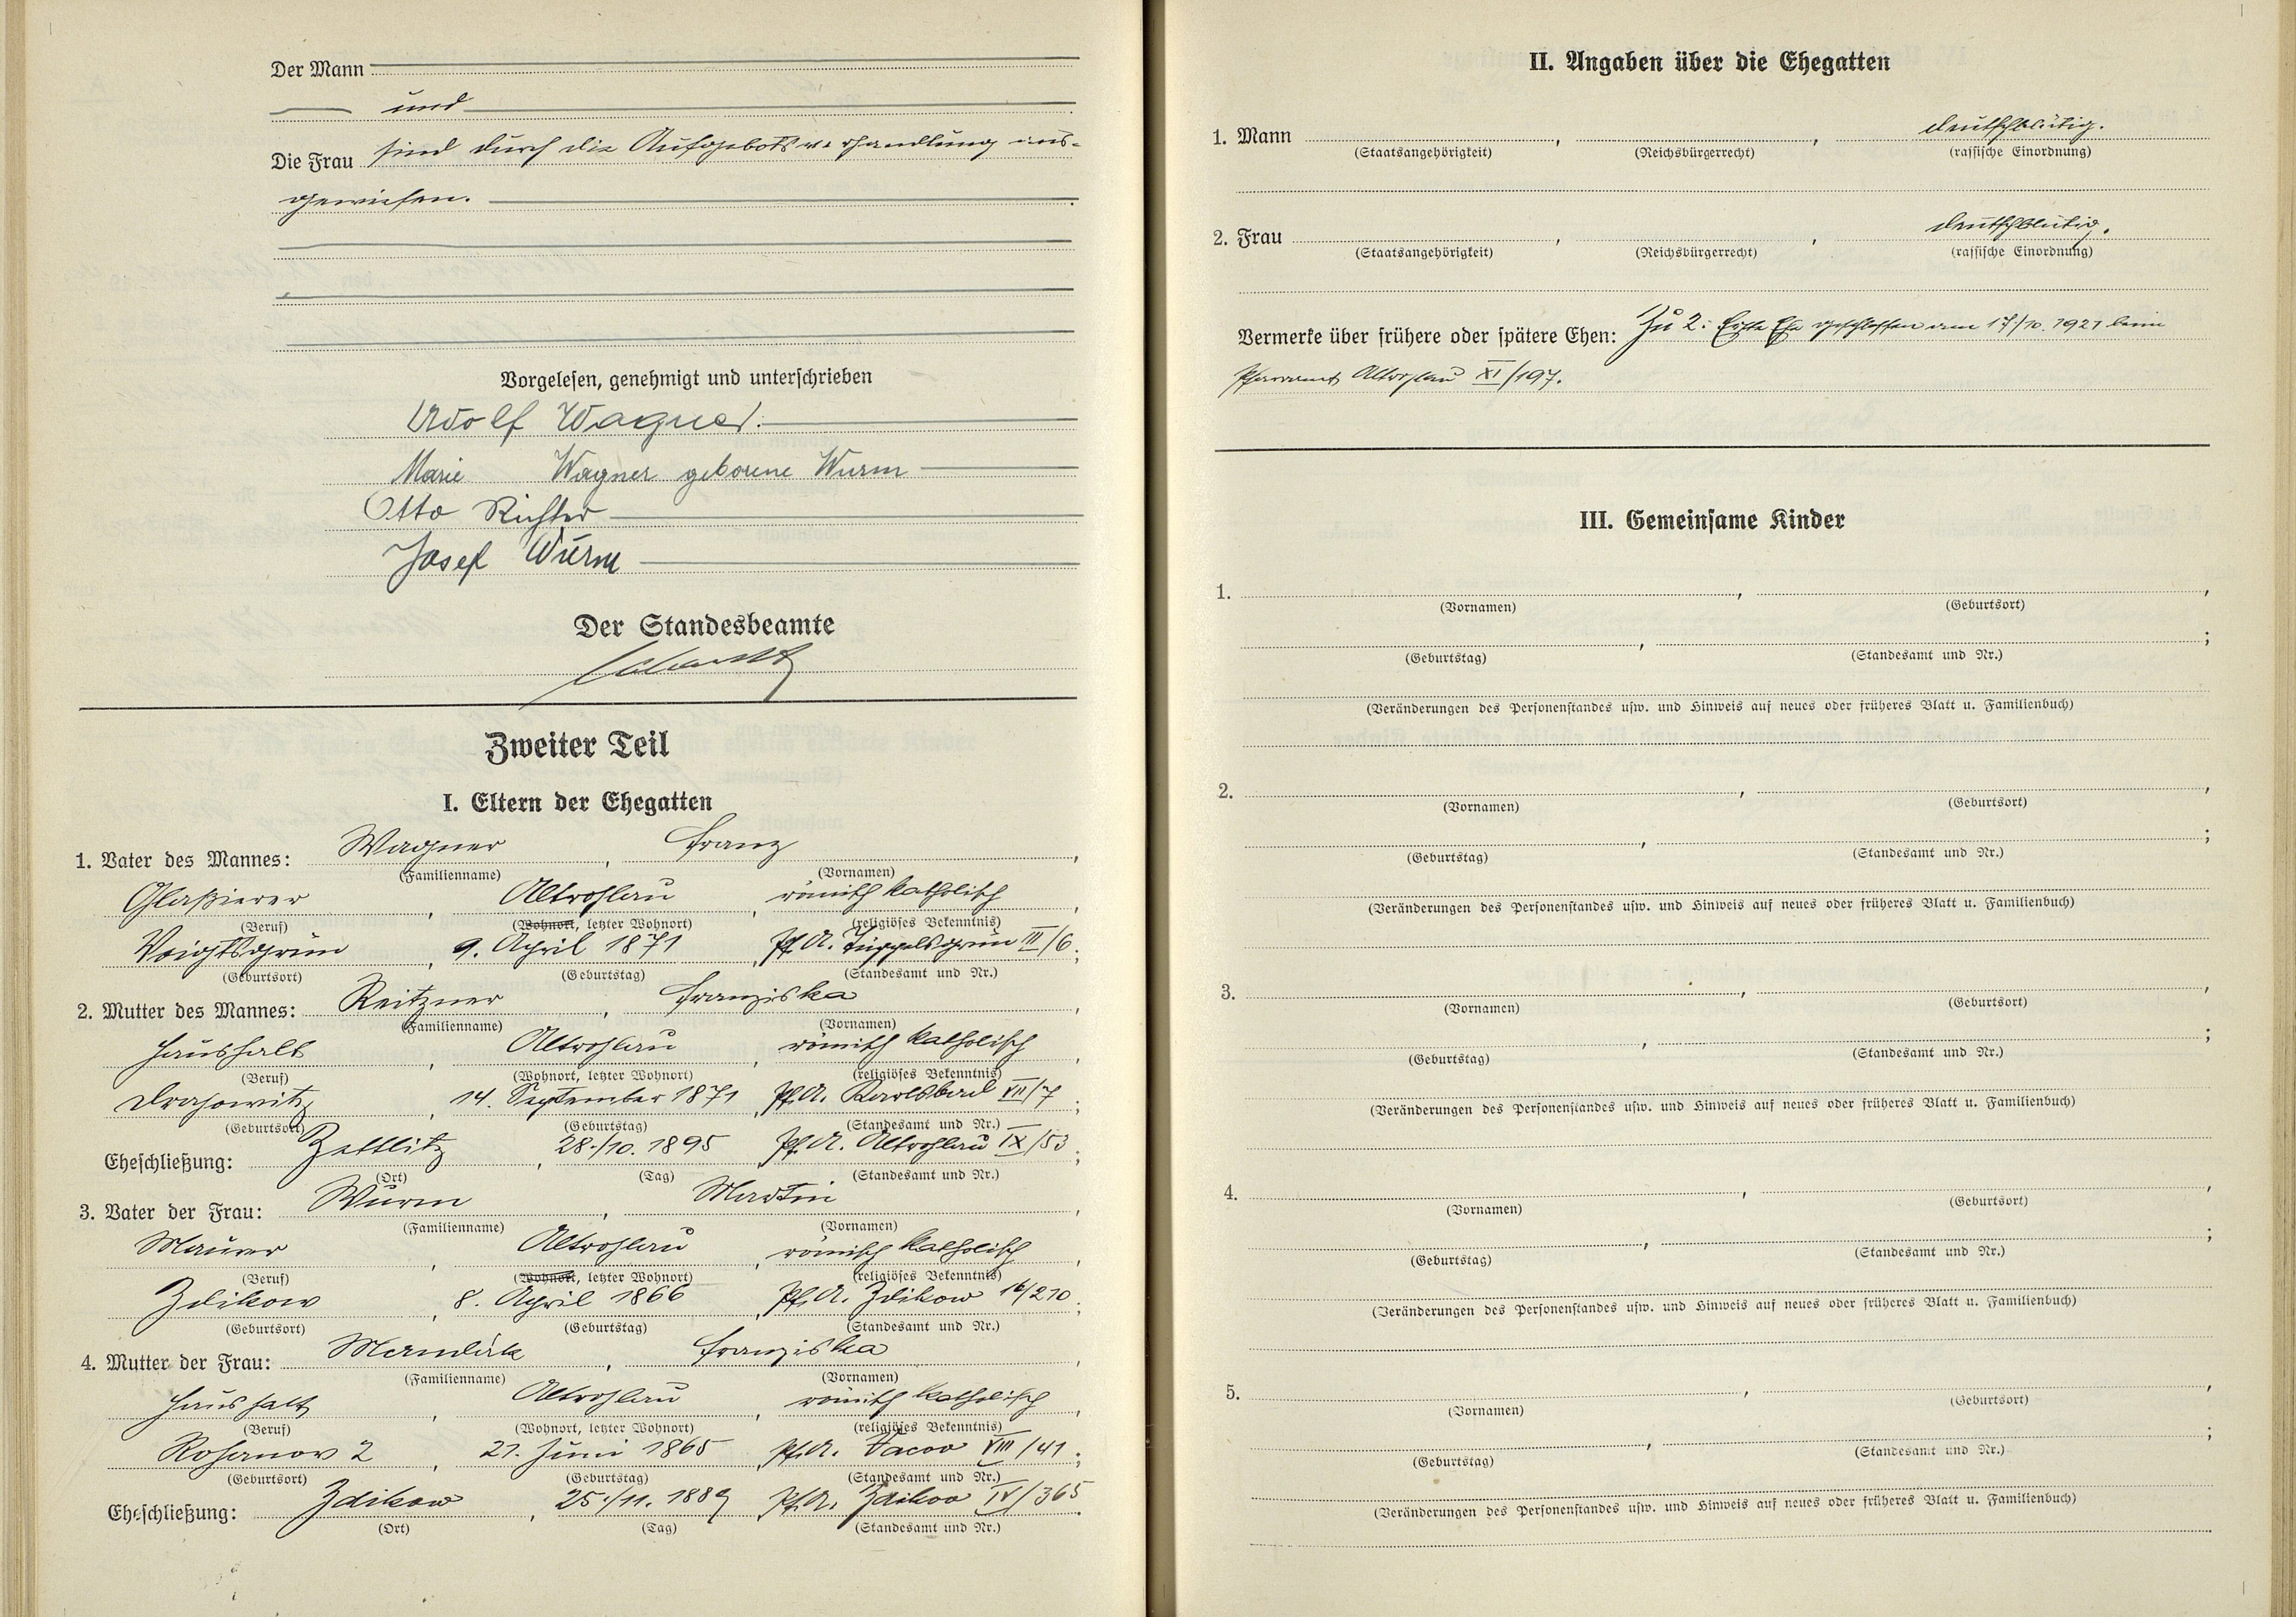 Der Mann
und
Die Frau sind durch die Aufgebotsverhandlung aus-
gewiesen.
Vorgelesen, genehmigt und unterschrieben
Adolf Wagner.
Marie Wagner geborene Wurm
Otto Richter
Josef Wurm
Der Standesbeamte
Zweiter Teil
I. Eltern der Ehegatten
1. Vater des Mannes: Wagner, Franz,
(Familienname) (Vornamen)
Glasierer, Altrohlau, römisch katholisch,
(Beruf) (Wohnort, letzter Wohnort) (religiöses Bekenntnis)
Voigtsgrün, 9. April 1871, Pf. A. III/6;
(Geburtsort) (Geburtstag) (Standesamt und Nr.)
2. Mutter des Mannes: Reitzner, Franziska,
(Familienname) (Vornamen)
Haushalt, Altrohlau, römisch katholisch,
(Beruf) (Wohnort, letzter Wohnort) (religiöses Bekenntnis)
Drahowitz, 14. September 1871, Pf. A. Karlsbad VII/7;
(Geburtsort) (Geburtstag) (Standesamt und Nr.)
Eheschließung: Zettlitz, 28./10. 1895, Pf. A. Altrohlau IX/53;
(Ort) (Tag) (Standesamt und Nr.)
3. Vater der Frau: Wurm, Martin,
(Familienname) (Vornamen)
Maurer, Altrohlau, römisch katholisch,
(Beruf) (Wohnort, letzter Wohnort) (religiöses Bekenntnis)
Zdikow, 8. April 1866, Pf. A. Zdikow 16/210;
(Geburtsort) (Geburtstag) (Standesamt und Nr.)
4. Mutter der Frau: Mandík, Franziska,
(Familienname) (Vornamen)
Haushalt, Altrohlau, römisch katholisch,
(Beruf) (Wohnort, letzter Wohnort) (religiöses Bekenntnis)
Rohanov 2, 21. Juni 1865, Pf. A. Vacov VIII/41;
(Geburtsort) (Geburtstag) (Standesamt und Nr.)
Eheschließung: Zdikow, 25./11. 1889, Pf. A. Zdikov IV/365.
(Ort) (Tag) (Standesamt und Nr.)
II. Angaben über die Ehegatten
1. Mann , , deutschblütig.
(Staatsangehörigkeit) (Reichsbürgerrecht) (rassische Einordnung)
2. Frau , , deutschblütig.
(Staatsangehörigkeit) (Reichsbürgerrecht) (rassische Einordnung)
Vermerke über frühere oder spätere Ehen: Zu 2: Erste Ehe geschlossen am 17/10. 1921 beim
Pfarramt Altrohlau XI/197.
III. Gemeinsame Kinder
1. , ,
(Vornamen) (Geburtsort)
, ;
(Geburtstag) (Standesamt und Nr.)
(Veränderungen des Personenstandes usw. und Hinweis auf neues oder früheres Blatt u. Familienbuch)
2. , ,
(Vornamen) (Geburtsort)
, ;
(Geburtstag) (Standesamt und Nr.)
(Veränderungen des Personenstandes usw. und Hinweis auf neues oder früheres Blatt u. Familienbuch)
3. , ,
(Vornamen) (Geburtsort)
, ;
(Geburtstag) (Standesamt und Nr.)
(Veränderungen des Personenstandes usw. und Hinweis auf neues oder früheres Blatt u. Familienbuch)
4. , ,
(Vornamen) (Geburtsort)
, ;
(Geburtstag) (Standesamt und Nr.)
(Veränderungen des Personenstandes usw. und Hinweis auf neues oder früheres Blatt u. Familienbuch)
5. , ,
(Vornamen) (Geburtsort)
, ;
(Geburtstag) (Standesamt und Nr.)
(Veränderungen des Personenstandes usw. und Hinweis auf neues oder früheres Blatt u. Familienbuch)